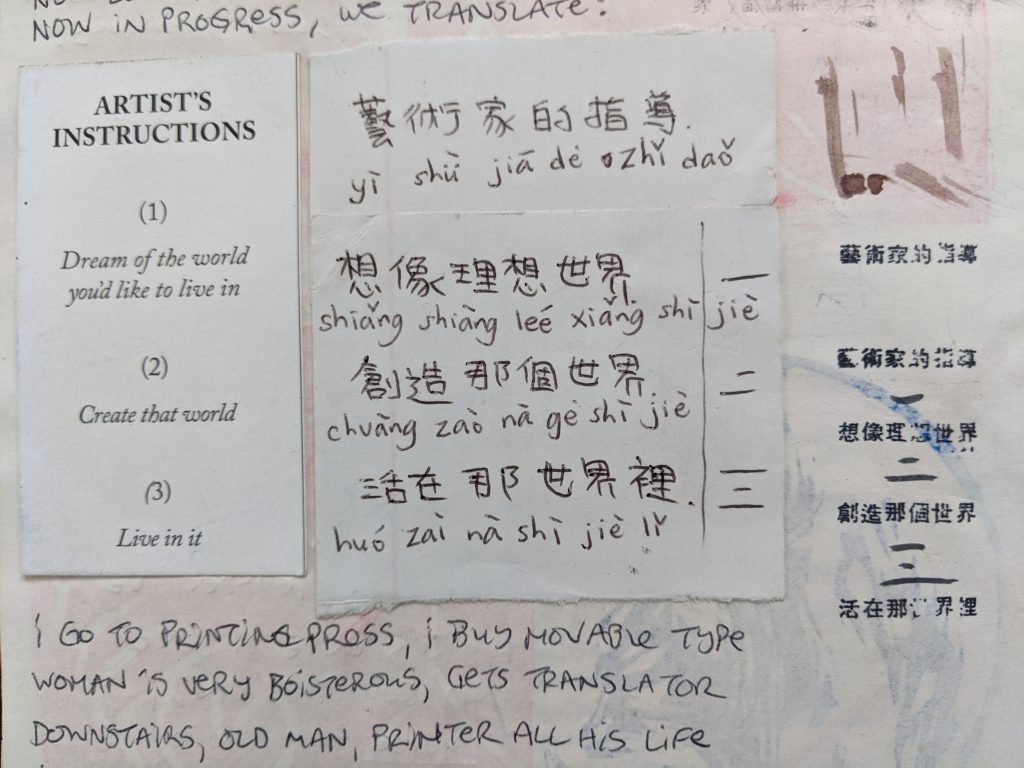 NOW IN PROGRESS, WE TRANSLATE:
ARTIST'S
INSTRUCTIONS
(1)
Dream of the world
you'd like to live in
(2)
Create that world
(3)
Live in it
藝術家的指導.
yì shù jiā dė zhǐ daǒ
想像理想世界 一
shiǎng shiàng leé xiǎng shì jiè
創造那個世界 二
chuàng zaò nà gė shì jiè
活在那世界裡. 三
huó zaì nà shì jiè lǐ
藝術家的指導
藝術家的指導
一
想像理想世界
二
創造那個世界
三
活在那世界裡
i GO TO PRINTING PRESS, i BUY MOVABLE TYPE
WOMAN IS VERY BOISTEROUS, GETS TRANSLATOR
DOWNSTAIRS, OLD MAN, PRINTER ALL HIS LIFE